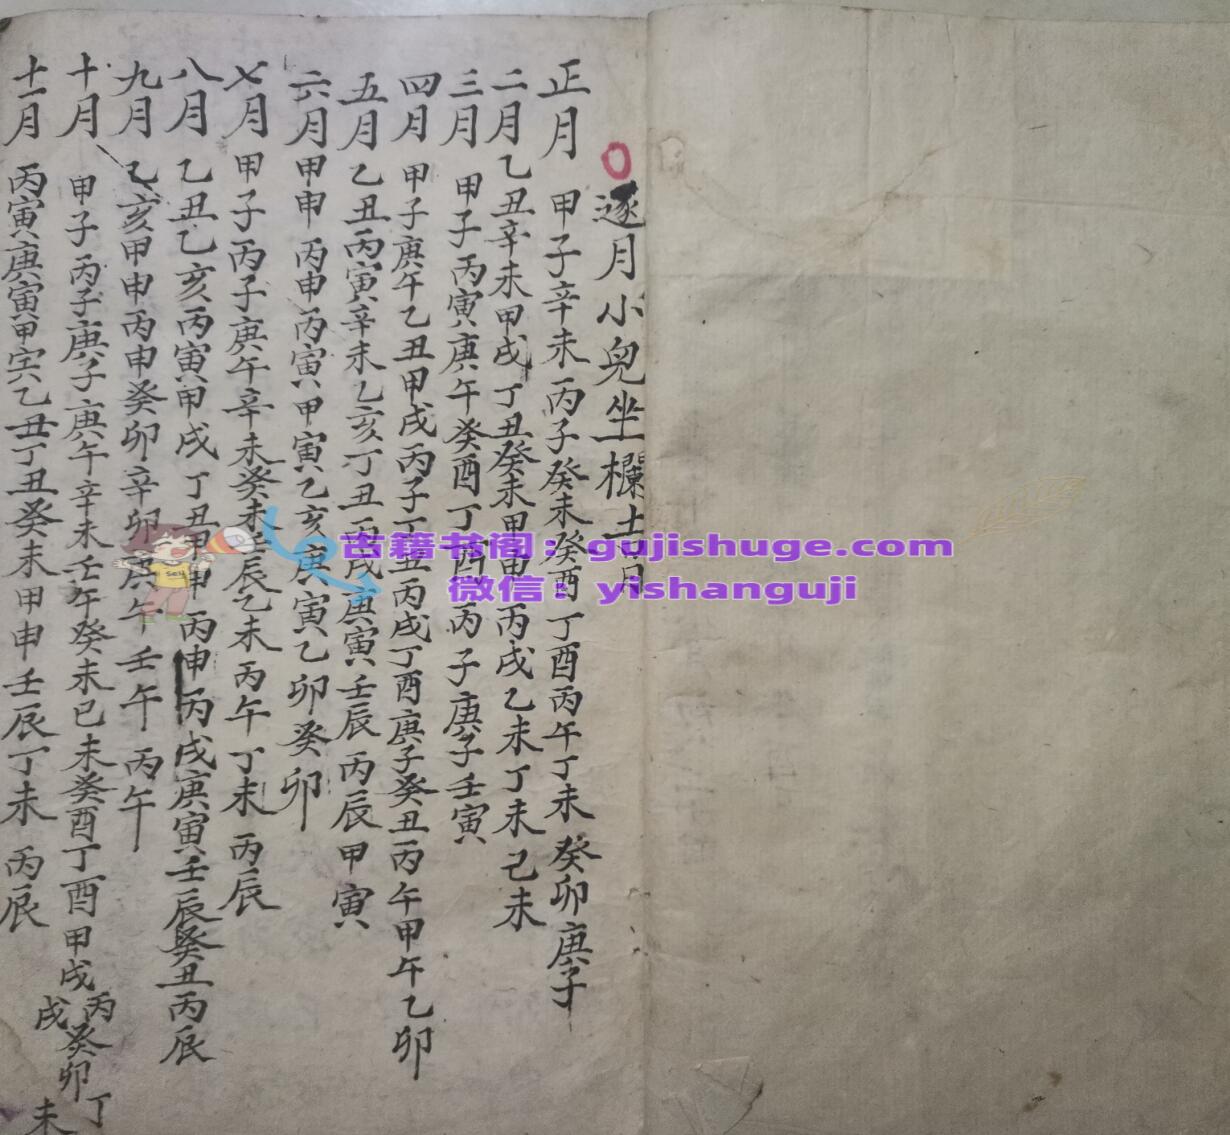 逐月小兒坐欄吉月
正月 甲子辛未丙子癸未癸酉丁酉丙午丁未癸卯庚子
二月乙丑辛未甲戌丁丑癸未甲申丙戌乙未丁未己未
三月 甲子丙寅庚午癸酉丁酉丙子庚子壬寅
四月 甲子庚午乙丑甲戌丙子丁丑丙戌丁酉庚子癸丑丙午甲午乙卯
五月乙丑丙寅辛未乙亥丁丑丙戌庚寅壬辰丙辰甲寅
六月甲申丙申丙寅甲寅乙亥庚寅乙卯癸卯
七月甲子丙子庚午辛未癸未壬辰乙未丙午丁未丙辰
八月 乙丑乙亥丙寅甲戌丁丑甲申丙申丙戌庚寅壬辰癸丑丙辰
九月乙亥甲申丙申癸卯辛卯庚午壬午丙午
十月 甲子丙子庚子庚午辛未壬午癸未己未癸酉丁酉甲戌丙戌癸卯丁未
十一月 丙寅庚寅甲寅乙丑丁丑癸未甲申壬辰丁未丙辰
古籍书阁：gujishuge.com
微信：yishanguji